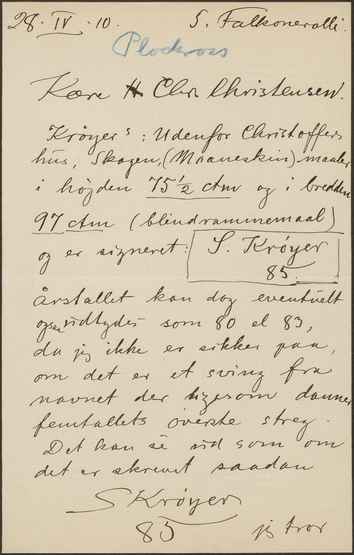 28. IV. 10. 5. Falkoneralle.
Plockross
Kære H Chr. Christensen.
Krøyers: Udenfor Christoffers
hus, Skagen, (Maaneskin) maaler
i højden 75 1/2 ctm og i bredden
97 ctm (blindrammemaal)
og er signeret: S. Krøyer
85.
Årstallet kan dog eventuelt
også udtydes som 80 el 83,
da jeg ikke er sikker paa,
om det er et sving fra
navnet der ligesom danner
femtallets øverste streg.
Det kan se ud som om
det er skrevet saadan
S Krøyer
85 jeg tror